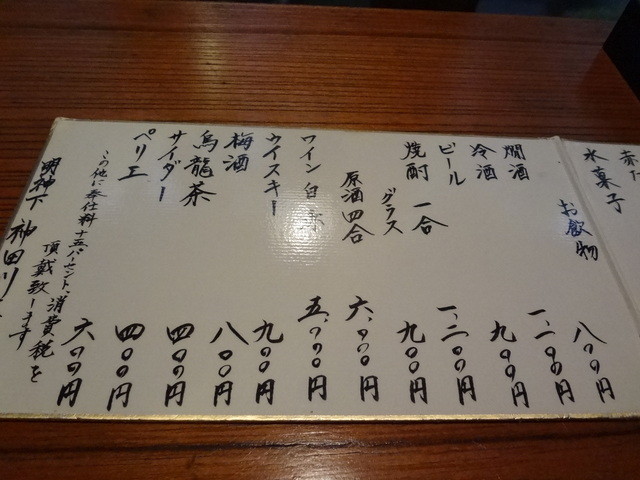 水菓子
お飲物
燗酒 八〇〇円
冷酒 一、一〇〇円
ビール 九〇〇円
焼酎 一合 一、二〇〇円
グラス 九〇〇円
原酒四合 六、〇〇〇円
ワイン 白 赤 五、〇〇〇円
ウイスキー 九〇〇円
梅酒 八〇〇円
烏龍茶 四〇〇円
サイダー 四〇〇円
ペリエ 六〇〇円
この他に奉仕料十五パーセント、消費税を
頂戴致します
明神下 神田